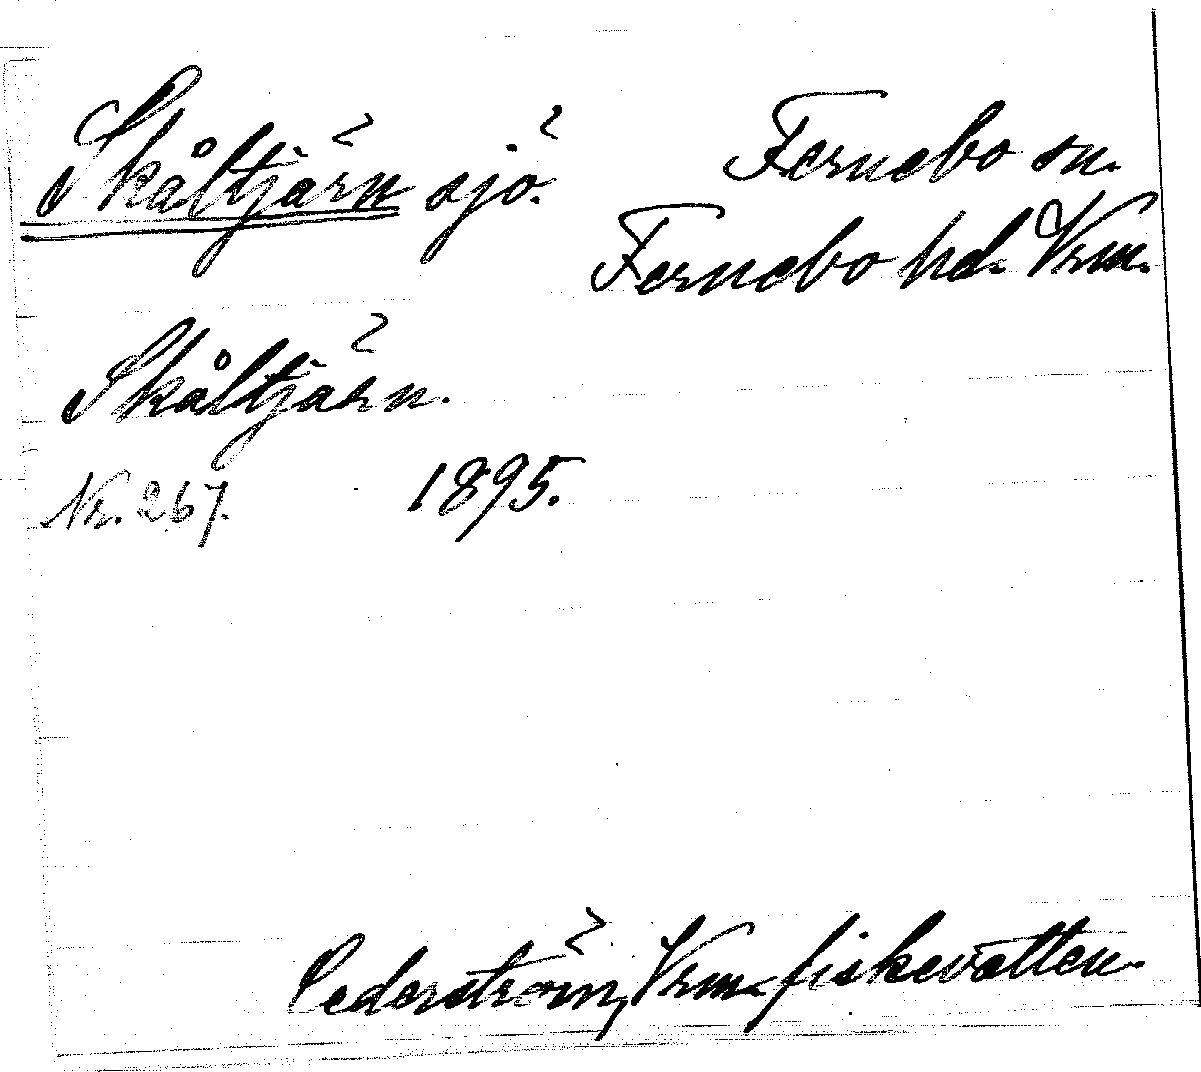 Skåltjärn sjö.
Fernebo sn.
Fernebo hd. Vrm.
Skåltjärn.
Nr. 267. 1895.
Cederström, Vrm. fiskevatten.